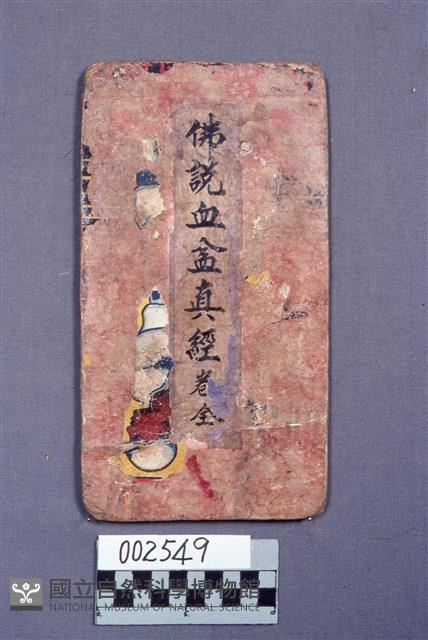 佛說血盆真經卷全
002549
國立自然科學博物館
NATIONAL MUSEUM OF NATURAL SCIENCE